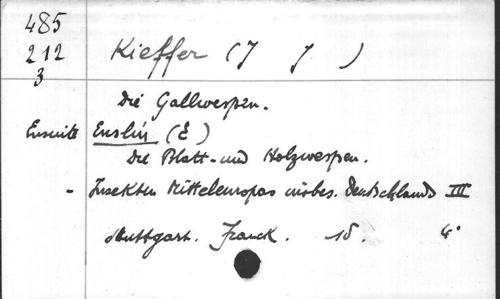 485
212
3
Kieffer (J J )
Die Gallwespen.
Ensuite Enslin (E)
Die Blatt- und Holzwespen.
- Insekten Mitteleuropas insbes. Deutschlands III
Stuttgart. Franck. 4°